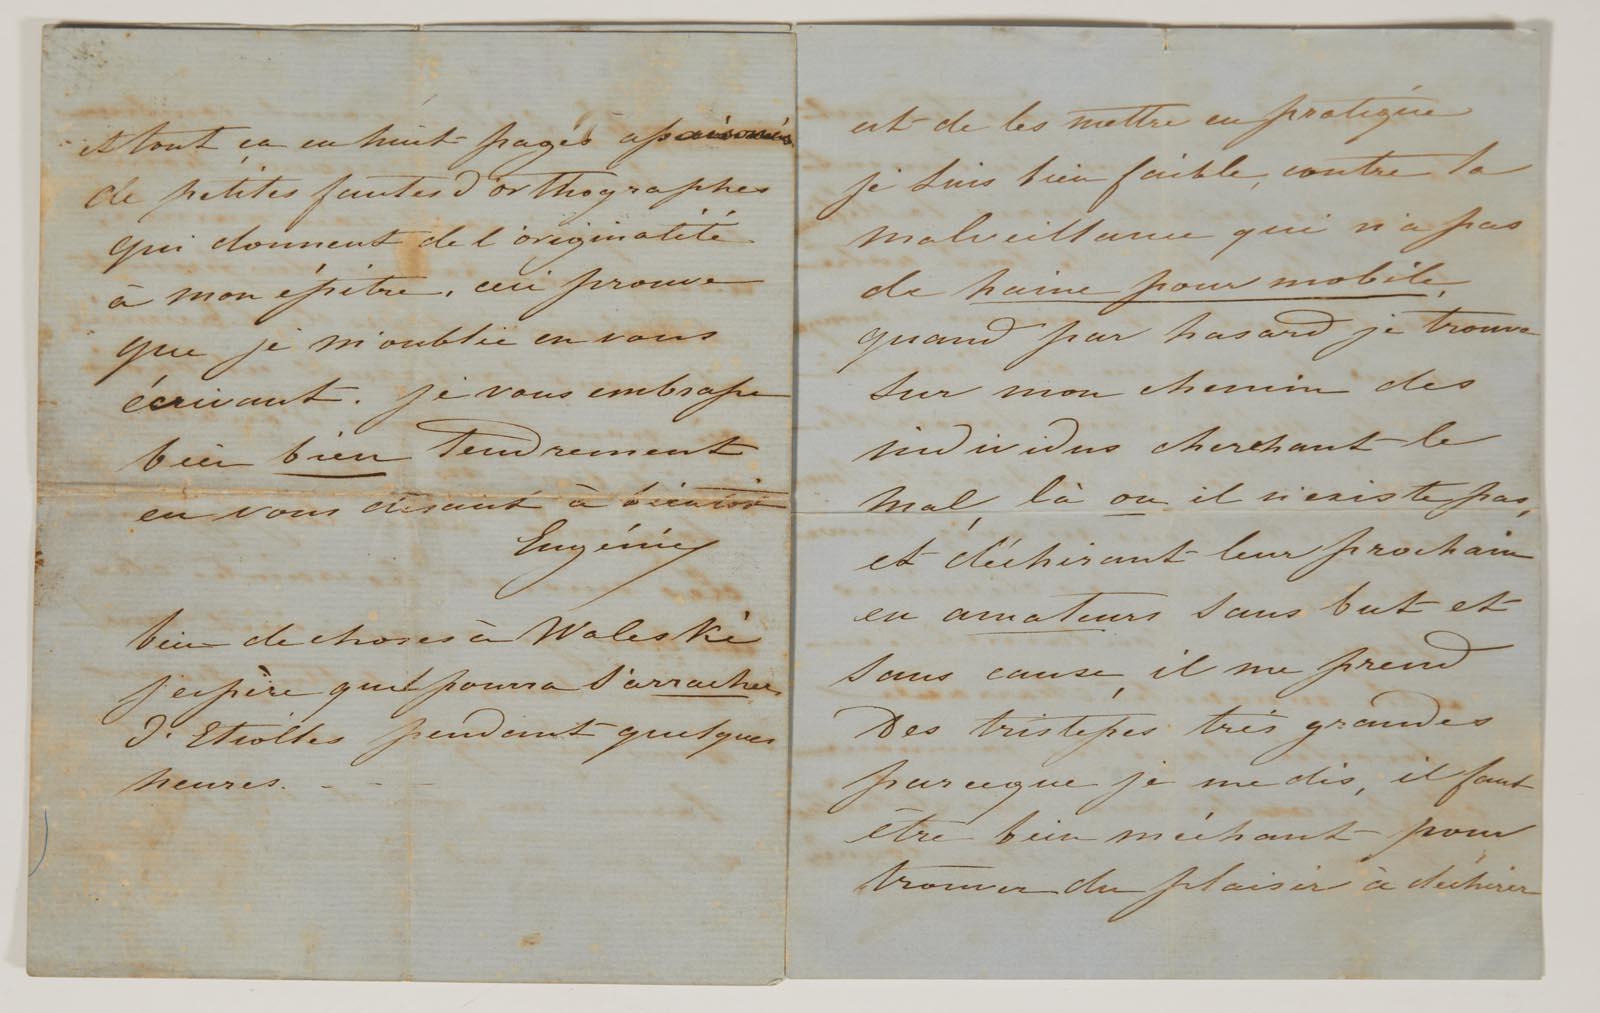 et tout ça en huit pages assaisonnés
de petites fautes d'orthographes
qui donnent de l'originalité
à mon épitre, ceci prouve
que je m'oublie en vous
écrivant. je vous embrasse
bien bien Tendrement
en vous disant à bientôt
Eugénie
bien de choses à Waleski
j'espère qu'il pourra s'arracher
d'Etiolles pendant quelques
heures. - - -
est de les mettre en pratique
je suis bien faible, contre la
malveillance qui n'a pas
de haine pour mobile,
quand par hasard je trouve
sur mon chemin des
individus cherchant le
mal, là ou il n'existe pas,
et déchirant leur prochain
en amateurs sans but et
sans cause, il me prend
Des tristesses très grandes
parceque je me dis, il faut
être bien méchant pour
trouver du plaisir à déchirer